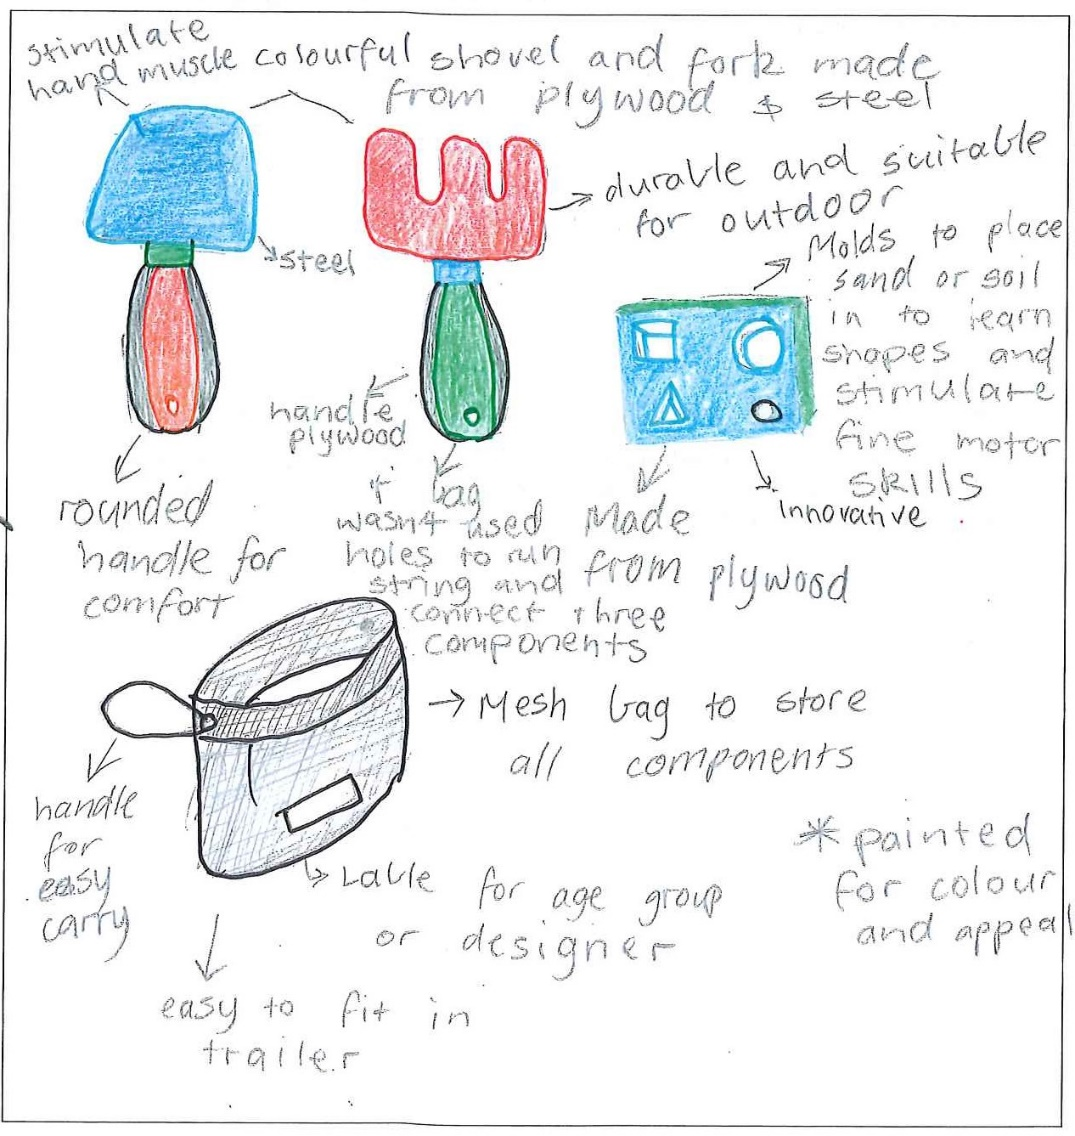 stimulate
hand muscle
colourful shovel and fork made
from plywood & steel
durable and suitable
for outdoor
steel
Molds to place
sand or soil
in to learn
shapes and
stimulate
fine motor
skills
handle
plywood
rounded
handle for
comfort
if bag
wasn't used
holes to run
string and
connect three
components
Made
from plywood
innovative
Mesh bag to store
all components
handle
for
easy
carry
Lable for age group
or designer
* painted
for colour
and appeal
easy to fit in
trailer